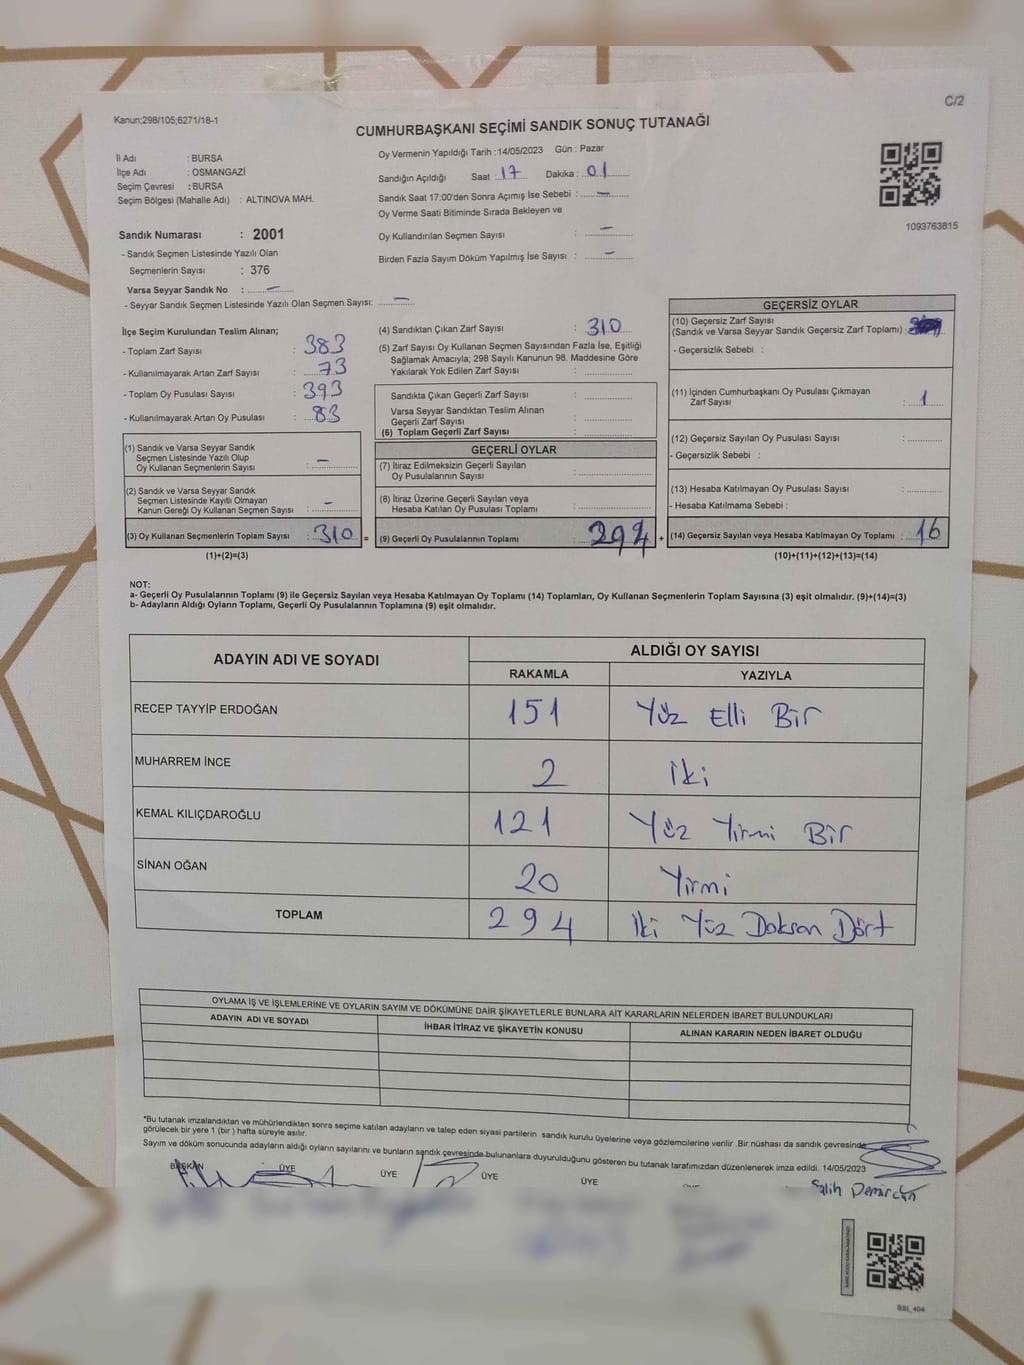 C/2
Kanun;298/105;6271/18-1
CUMHURBAŞKANI SEÇİMİ SANDIK SONUÇ TUTANAĞI
İl Adı : BURSA
İlçe Adı : OSMANGAZİ
Seçim Çevresi : BURSA
Seçim Bölgesi (Mahalle Adı) : ALTINOVA MAH.
Oy Vermenin Yapıldığı Tarih :14/05/2023 Gün : Pazar
Sandığın Açıldığı Saat : 17 Dakika : 01
Sandık Saat 17:00'den Sonra Açımış İse Sebebi : –
Oy Verme Saati Bitiminde Sırada Bekleyen ve
Oy Kullandırılan Seçmen Sayısı : –
Birden Fazla Sayım Döküm Yapılmış İse Sayısı : –
1093763815
Sandık Numarası : 2001
- Sandık Seçmen Listesinde Yazılı Olan
Seçmenlerin Sayısı : 376
Varsa Seyyar Sandık No : –
- Seyyar Sandık Seçmen Listesinde Yazılı Olan Seçmen Sayısı: –
İlçe Seçim Kurulundan Teslim Alınan;
- Toplam Zarf Sayısı : 383
- Kullanılmayarak Artan Zarf Sayısı : 73
- Toplam Oy Pusulası Sayısı : 393
- Kullanılmayarak Artan Oy Pusulası : 83
(1) Sandık ve Varsa Seyyar Sandık
Seçmen Listesinde Yazılı Olup
Oy Kullanan Seçmenlerin Sayısı : –
(2) Sandık ve Varsa Seyyar Sandık
Seçmen Listesinde Kayıtlı Olmayan
Kanun Gereği Oy Kullanan Seçmen Sayısı : –
(3) Oy Kullanan Seçmenlerin Toplam Sayısı : 310 =
(1)+(2)=(3)
(4) Sandıktan Çıkan Zarf Sayısı : 310
(5) Zarf Sayısı Oy Kullanan Seçmen Sayısından Fazla İse, Eşitliği
Sağlamak Amacıyla; 298 Sayılı Kanunun 98. Maddesine Göre
Yakılarak Yok Edilen Zarf Sayısı :
Sandıkta Çıkan Geçerli Zarf Sayısı :
Varsa Seyyar Sandıktan Teslim Alınan
Geçerli Zarf Sayısı :
(6) Toplam Geçerli Zarf Sayısı :
GEÇERLİ OYLAR
(7) İtiraz Edilmeksizin Geçerli Sayılan
Oy Pusulalarının Sayısı :
(8) İtiraz Üzerine Geçerli Sayılan veya
Hesaba Katılan Oy Pusulası Toplamı :
(9) Geçerli Oy Pusulalarının Toplamı : 294 +
GEÇERSİZ OYLAR
(10) Geçersiz Zarf Sayısı
(Sandık ve Varsa Seyyar Sandık Geçersiz Zarf Toplamı) :
- Geçersizlik Sebebi :
(11) İçinden Cumhurbaşkanı Oy Pusulası Çıkmayan
Zarf Sayısı : 1
(12) Geçersiz Sayılan Oy Pusulası Sayısı :
- Geçersizlik Sebebi :
(13) Hesaba Katılmayan Oy Pusulası Sayısı :
- Hesaba Katılmama Sebebi :
(14) Geçersiz Sayılan veya Hesaba Katılmayan Oy Toplamı : 16
(10)+(11)+(12)+(13)=(14)
NOT:
a- Geçerli Oy Pusulalarının Toplamı (9) ile Geçersiz Sayılan veya Hesaba Katılmayan Oy Toplamı (14) Toplamları, Oy Kullanan Seçmenlerin Toplam Sayısına (3) eşit olmalıdır. (9)+(14)=(3)
b- Adayların Aldığı Oyların Toplamı, Geçerli Oy Pusulalarının Toplamına (9) eşit olmalıdır.
ADAYIN ADI VE SOYADI
ALDIĞI OY SAYISI
RAKAMLA YAZIYLA
RECEP TAYYİP ERDOĞAN 151 Yüz Elli Bir
MUHARREM İNCE 2 İki
KEMAL KILIÇDAROĞLU 121 Yüz Yirmi Bir
SİNAN OĞAN 20 Yirmi
TOPLAM 294 İki Yüz Doksan Dört
OYLAMA İŞ VE İŞLEMLERİNE VE OYLARIN SAYIM VE DÖKÜMÜNE DAİR ŞİKAYETLERLE BUNLARA AİT KARARLARIN NELERDEN İBARET BULUNDUKLARI
ADAYIN ADI VE SOYADI İHBAR İTİRAZ VE ŞİKAYETİN KONUSU ALINAN KARARIN NEDEN İBARET OLDUĞU
*Bu tutanak imzalandıktan ve mühürlendikten sonra seçime katılan adayların ve talep eden siyasi partilerin sandık kurulu üyelerine veya gözlemcilerine verilir .Bir nüshası da sandık çevresinde
görülecek bir yere 1 (bir ) hafta süreyle asılır.
Sayım ve döküm sonucunda adayların aldığı oyların sayılarını ve bunların sandık çevresinde bulunanlara duyurulduğunu gösteren bu tutanak tarafımızdan düzenlenerek imza edildi. 14/05/2023
BAŞKAN ÜYE ÜYE ÜYE ÜYE
Salih Demircan